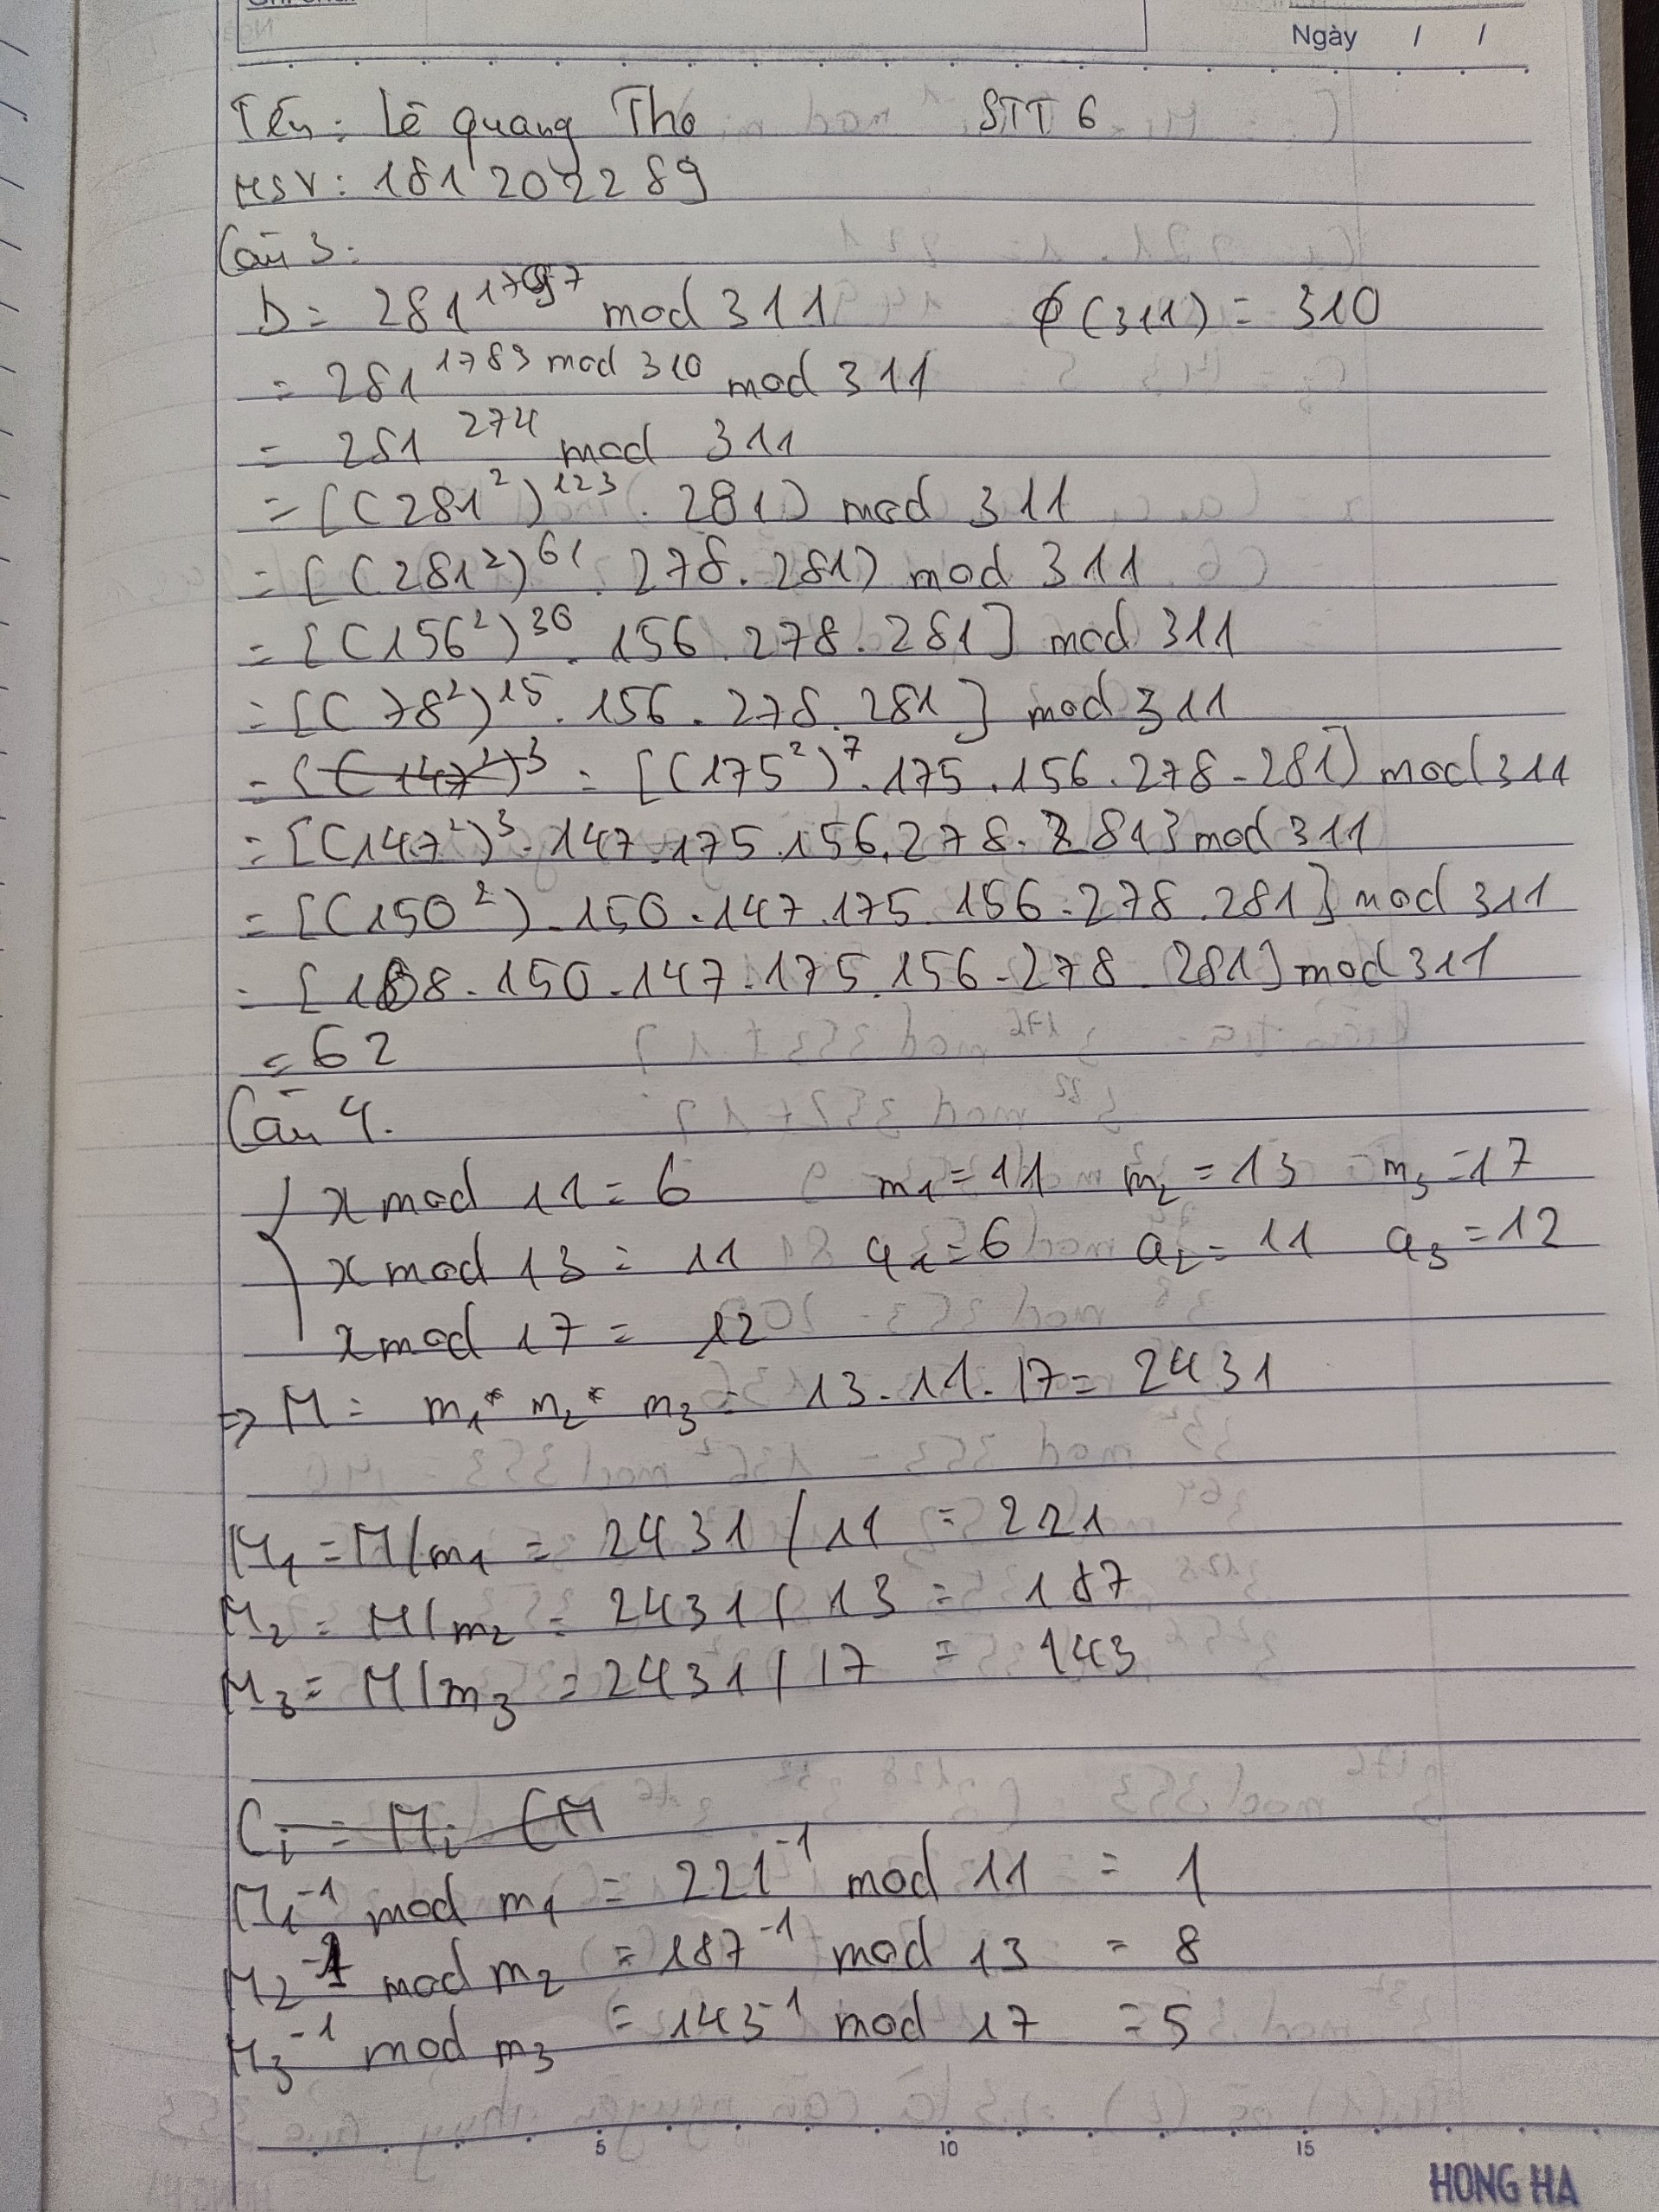 Ngày / /
Tên: Lê Quang Thọ STT 6
MSV: 181202289
Câu 3:
b = 281^17 mod 311 ϕ(311) = 310
= 281^1783 mod 310 mod 311
= 281^274 mod 311
= [(281²)^123 . 281) mod 311
= [(281²)^61 . 278. 281) mod 311
= [(156²)^30 . 156. 278. 281] mod 311
= [(78²)^15 . 156. 278. 281] mod 311
= [(147²)^3 = [(175²)^7 .175 .156. 278 - 281] mod 311
= [(147²)^3 . 147. 175. 156. 278. 281] mod 311
= [(150²) . 150 .147. 175. 156. 278. 281] mod 311
= [108. 150. 147. 175. 156. 278. 281] mod 311
= 62
Câu 4.
x mod 11 = 6 m1 = 11 m2 = 13 m3 = 17
x mod 13 = 11 a1 = 6 a2 = 11 a3 = 12
x mod 17 = 12
=> M = m1* m2* m3 = 13.11.17 = 2431
M1 = M/m1 = 2431 / 11 = 221
M2 = M/m2 = 2431 / 13 = 187
M3 = M/m3 = 2431 / 17 = 143
Ci = Mi (M
M1^-1 mod m1 = 221^-1 mod 11 = 1
M2^-1 mod m2 = 187^-1 mod 13 = 8
M3^-1 mod m3 = 143^-1 mod 17 = 5
5 10 15
HONG HA